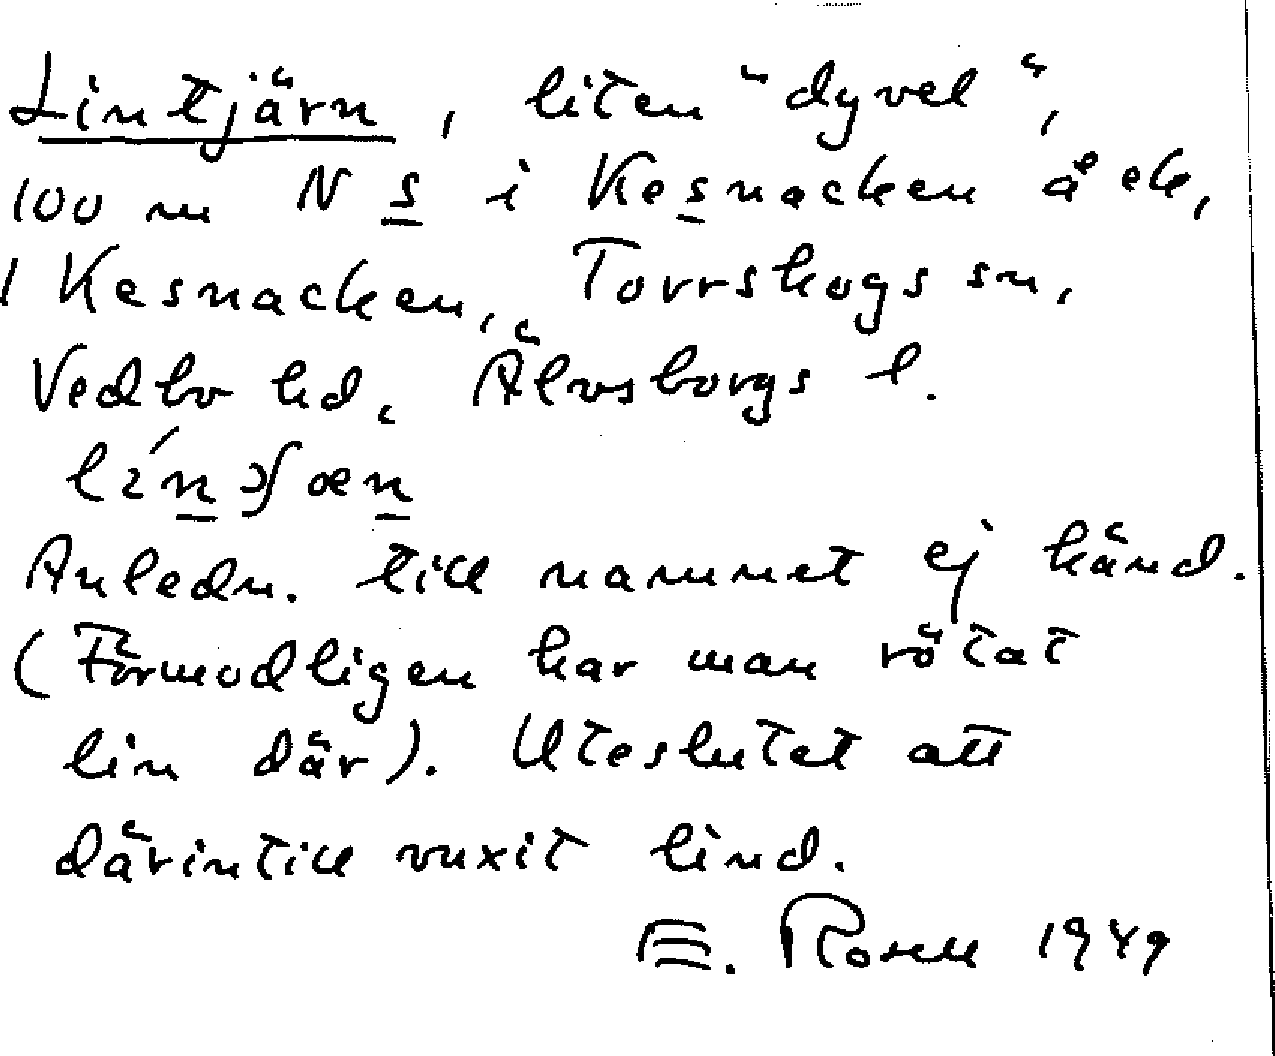 Lintjärn, liten "dyvel",
100 m N s i Kesnacken å ek,
1 Kesnacken, Torrskogs sn,
Vedbo hd, Älvsborgs l.
Anledn. till namnet ej känd.
(Förmodligen har man rötat
lin där). Uteslutet att
därintill vuxit lind.
E. Rosell 1949